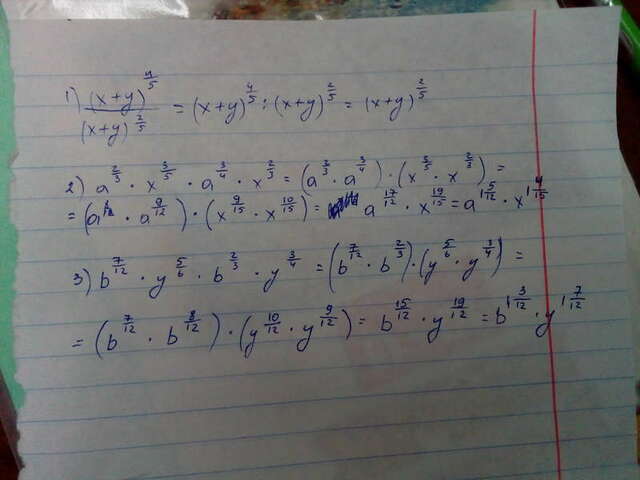 1) (x+y)^(4/5) / (x+y)^(2/5) = (x+y)^(4/5) : (x+y)^(2/5) = (x+y)^(2/5)
2) a^(2/3) · x^(3/5) · a^(3/4) · x^(2/3) = (a^(2/3) · a^(3/4)) · (x^(3/5) · x^(2/3)) =
= (a · a^(9/12)) · (x^(9/15) · x^(10/15)) = a^(17/12) · x^(19/15) = a^(1 5/12) · x^(1 4/15)
3) b^(7/12) · y^(5/6) · b^(2/3) · y^(3/4) = (b^(7/12) · b^(2/3)) · (y^(5/6) · y^(3/4)) =
= (b^(7/12) · b^(8/12)) · (y^(10/12) · y^(9/12)) = b^(15/12) · y^(19/12) = b^(1 3/12) · y^(1 7/12)